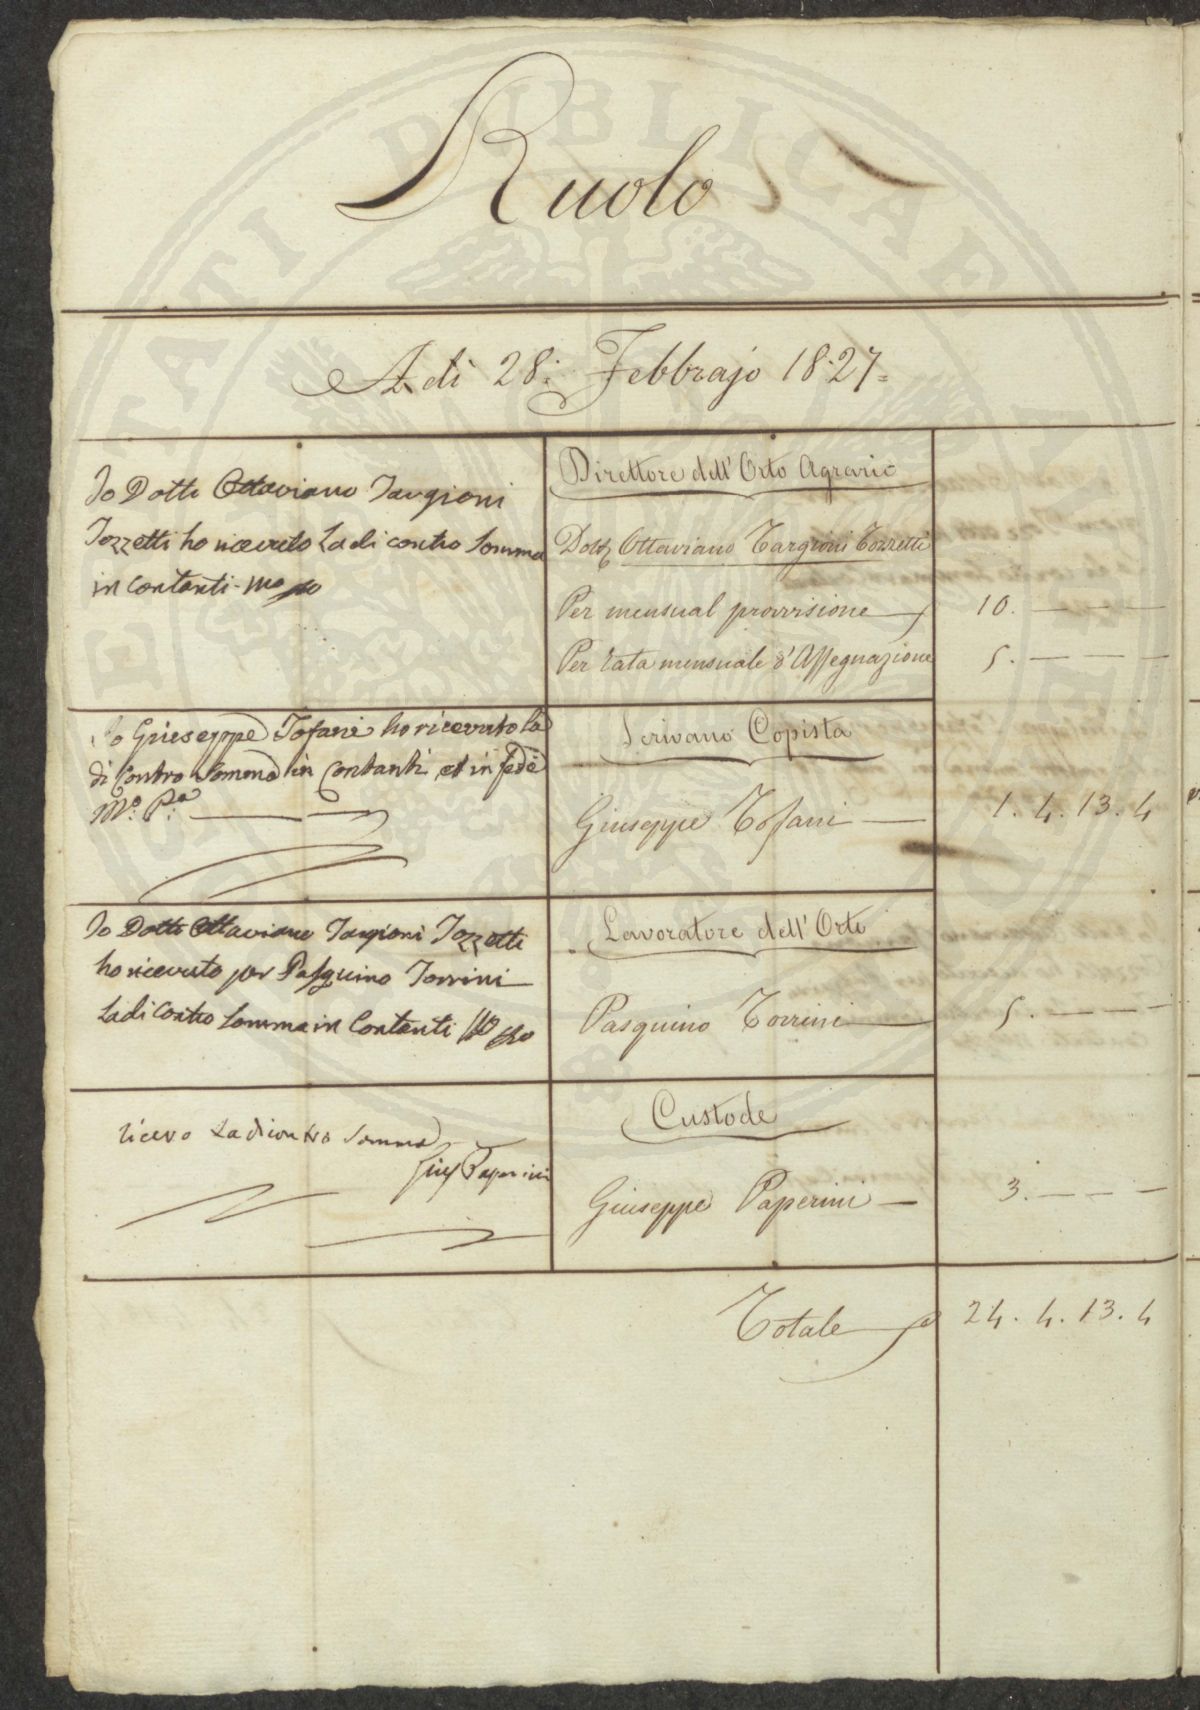 Ruolo
A dì 28: Febbrajo 1827=
Io Dotte Ottaviano Targioni
Tozzetti ho ricevuto La di contro Somma
in Contanti - mo ppo
Direttore dell' Orto Agrario
Dott Ottaviano Targioni Tozzetti
Per mensual provvisione 10. — — —
Per rata mensuale d'Assegnazione 5. — — —
Io Giuseppe Tofani ho ricevuto la
di Contro Somma in Contanti et in fede
Mo: Pa:
Scrivano Copista
Giuseppe Tofani — 1. 4. 13. 4
Io Dotte Ottaviano Targioni Tozzetti
ho ricevuto per Pasquino Torrini
La di Contro Somma in Contanti Mo ppo
Lavoratore dell' Orto
Pasquino Torrini — 5. — — —
ricevo La di contro Somma
Giusp Paperini
Custode
Giuseppe Paperini — 3. — — —
Totale 24. 4. 13. 4